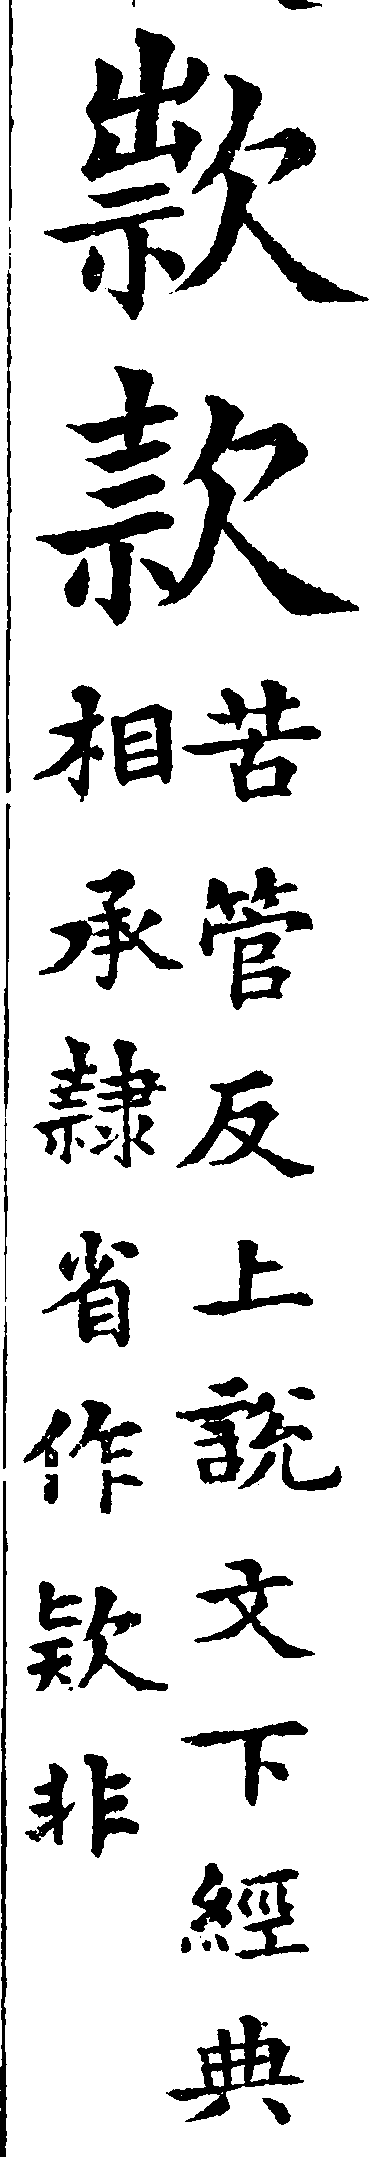 歀款
苦管反上說文下經典
相承隸省作欵非